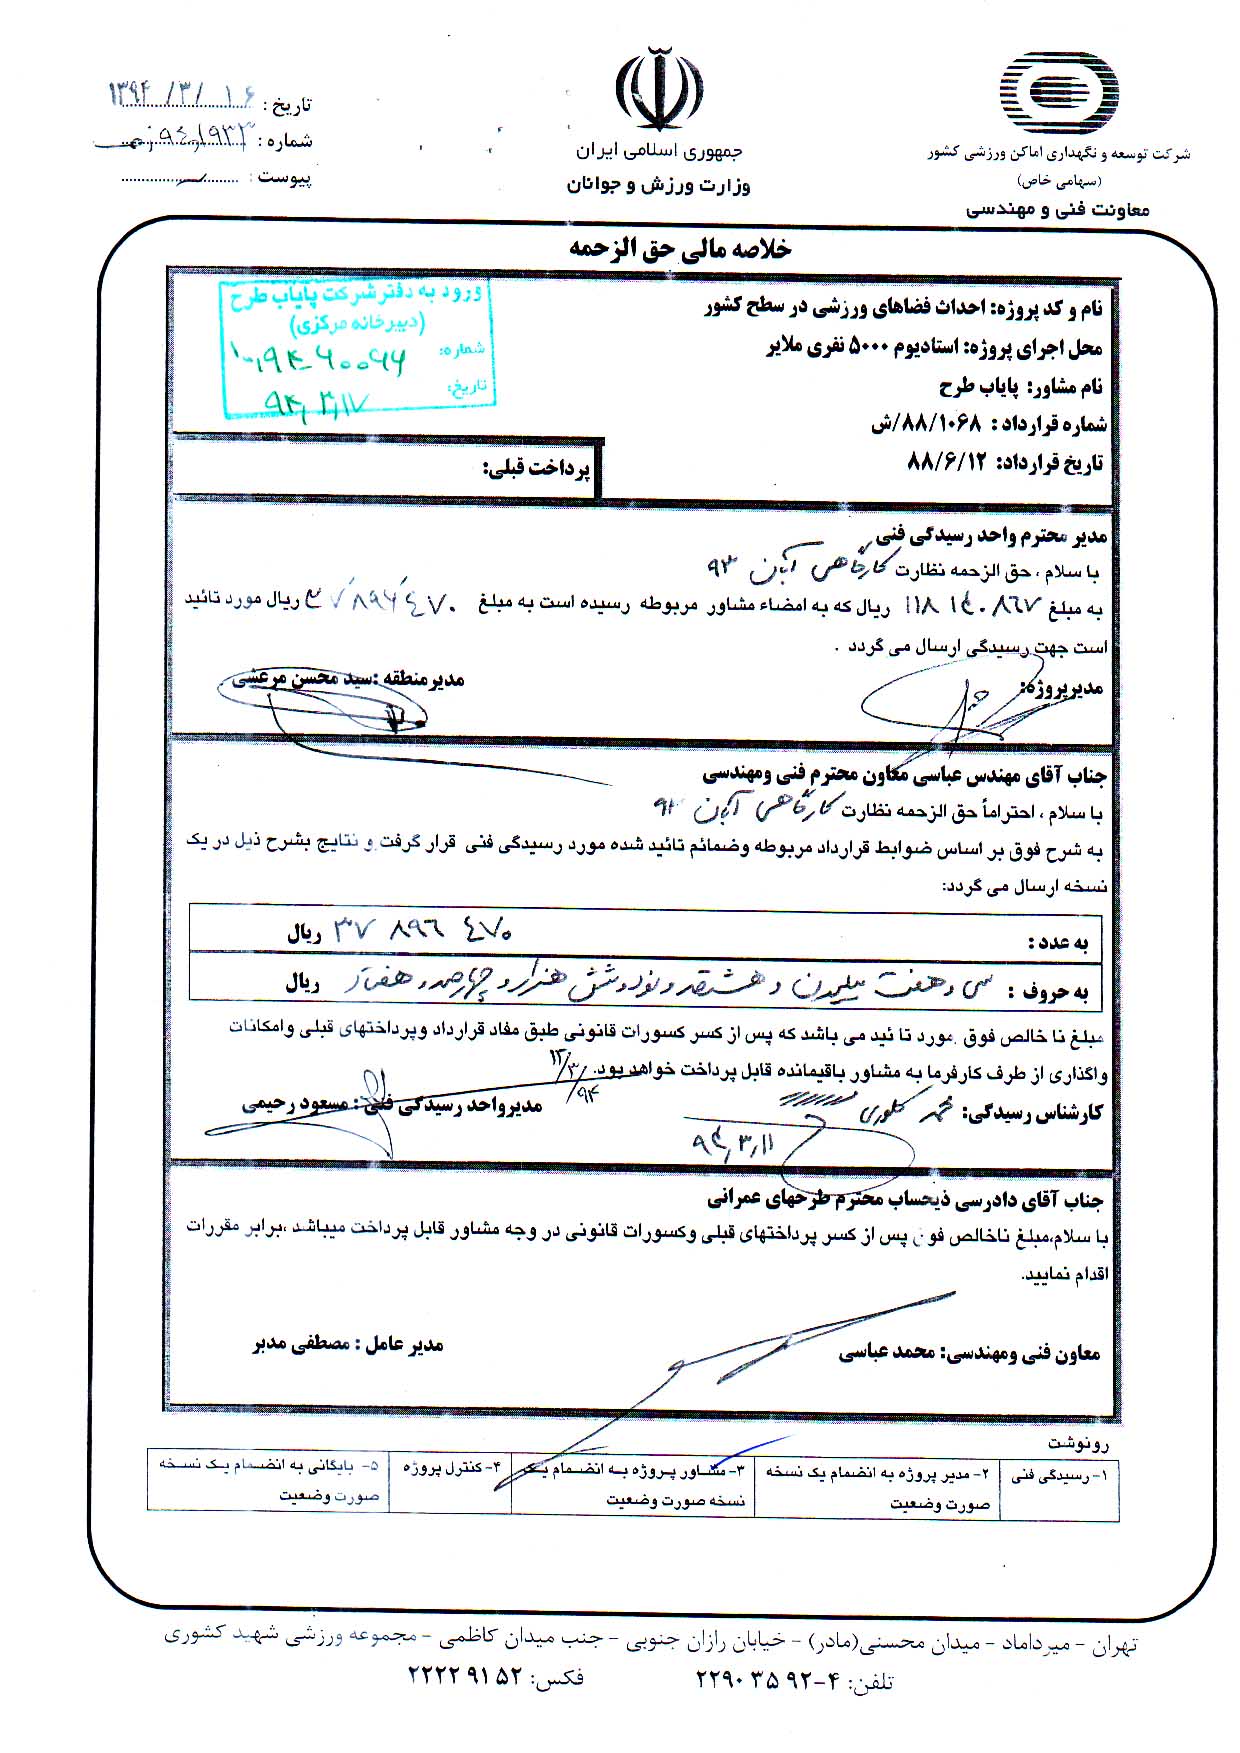 شرکت توسعه و نگهداری اماکن ورزشی کشور
(سهامی خاص)
معاونت فنی و مهندسی
جمهوری اسلامی ایران
وزارت ورزش و جوانان
تاریخ : ۱۳۹۴/۳/۱۶
شماره :
پیوست :
خلاصه مالی حق الزحمه
نام و کد پروژه: احداث فضاهای ورزشی در سطح کشور
محل اجرای پروژه: استادیوم ۵۰۰۰ نفری ملایر
نام مشاور: پایاب طرح
شماره قرارداد : ۸۸/۱۰۶۸/ش
تاریخ قرارداد: ۸۸/۶/۱۲
ورود به دفتر شرکت پایاب طرح
(دبیرخانه مرکزی)
شماره:
تاریخ: ۹۴,۳,۱۷
پرداخت قبلی:
مدیر محترم واحد رسیدگی فنی
با سلام ، حق الزحمه نظارت کارگاهی آبان ۹۳
به مبلغ ۱۱۸ ۱۴۰ ۸۶۷ ریال که به امضاء مشاور مربوطه رسیده است به مبلغ ۳۷ ۸۹۶ ۴۷۰ ریال مورد تائید
است جهت رسیدگی ارسال می گردد .
مدیرپروژه:
مدیرمنطقه :سید محسن مرعشی
جناب آقای مهندس عباسی معاون محترم فنی ومهندسی
با سلام ، احتراماً حق الزحمه نظارت کارگاهی آبان ۹۳
به شرح فوق بر اساس ضوابط قرارداد مربوطه وضمائم تائید شده مورد رسیدگی فنی قرار گرفت و نتایج بشرح ذیل در یک
نسخه ارسال می گردد:
به عدد : ۳۷ ۸۹۶ ۴۷۰ ریال
به حروف : سی و هفت میلیون و هشتصد و نود و شش هزار و چهارصد و هفتاد ریال
مبلغ نا خالص فوق مورد تا ئید می باشد که پس از کسر کسورات قانونی طبق مفاد قرارداد وپرداختهای قبلی وامکانات
واگذاری از طرف کارفرما به مشاور باقیمانده قابل پرداخت خواهد بود.
۱۲/۳/۹۴
کارشناس رسیدگی:
مدیرواحد رسیدگی فنی : مسعود رحیمی
۹۴,۳,۱۱
جناب آقای دادرسی ذیحساب محترم طرحهای عمرانی
با سلام،مبلغ ناخالص فوق پس از کسر پرداختهای قبلی وکسورات قانونی در وجه مشاور قابل پرداخت میباشد ،برابر مقررات
اقدام نمایید.
معاون فنی ومهندسی: محمد عباسی
مدیر عامل : مصطفی مدبر
رونوشت
۱- رسیدگی فنی
۲- مدیر پروژه به انضمام یک نسخه
صورت وضعیت
۳- مشاور پروژه به انضمام یک
نسخه صورت وضعیت
۴- کنترل پروژه
۵- بایگانی به انضمام یک نسخه
صورت وضعیت
تهران - میرداماد - میدان محسنی(مادر) - خیابان رازان جنوبی - جنب میدان کاظمی - مجموعه ورزشی شهید کشوری
تلفن: ۴-۲۲۹۰۳۵۹۲ فکس: ۲۲۲۲۹۱۵۲